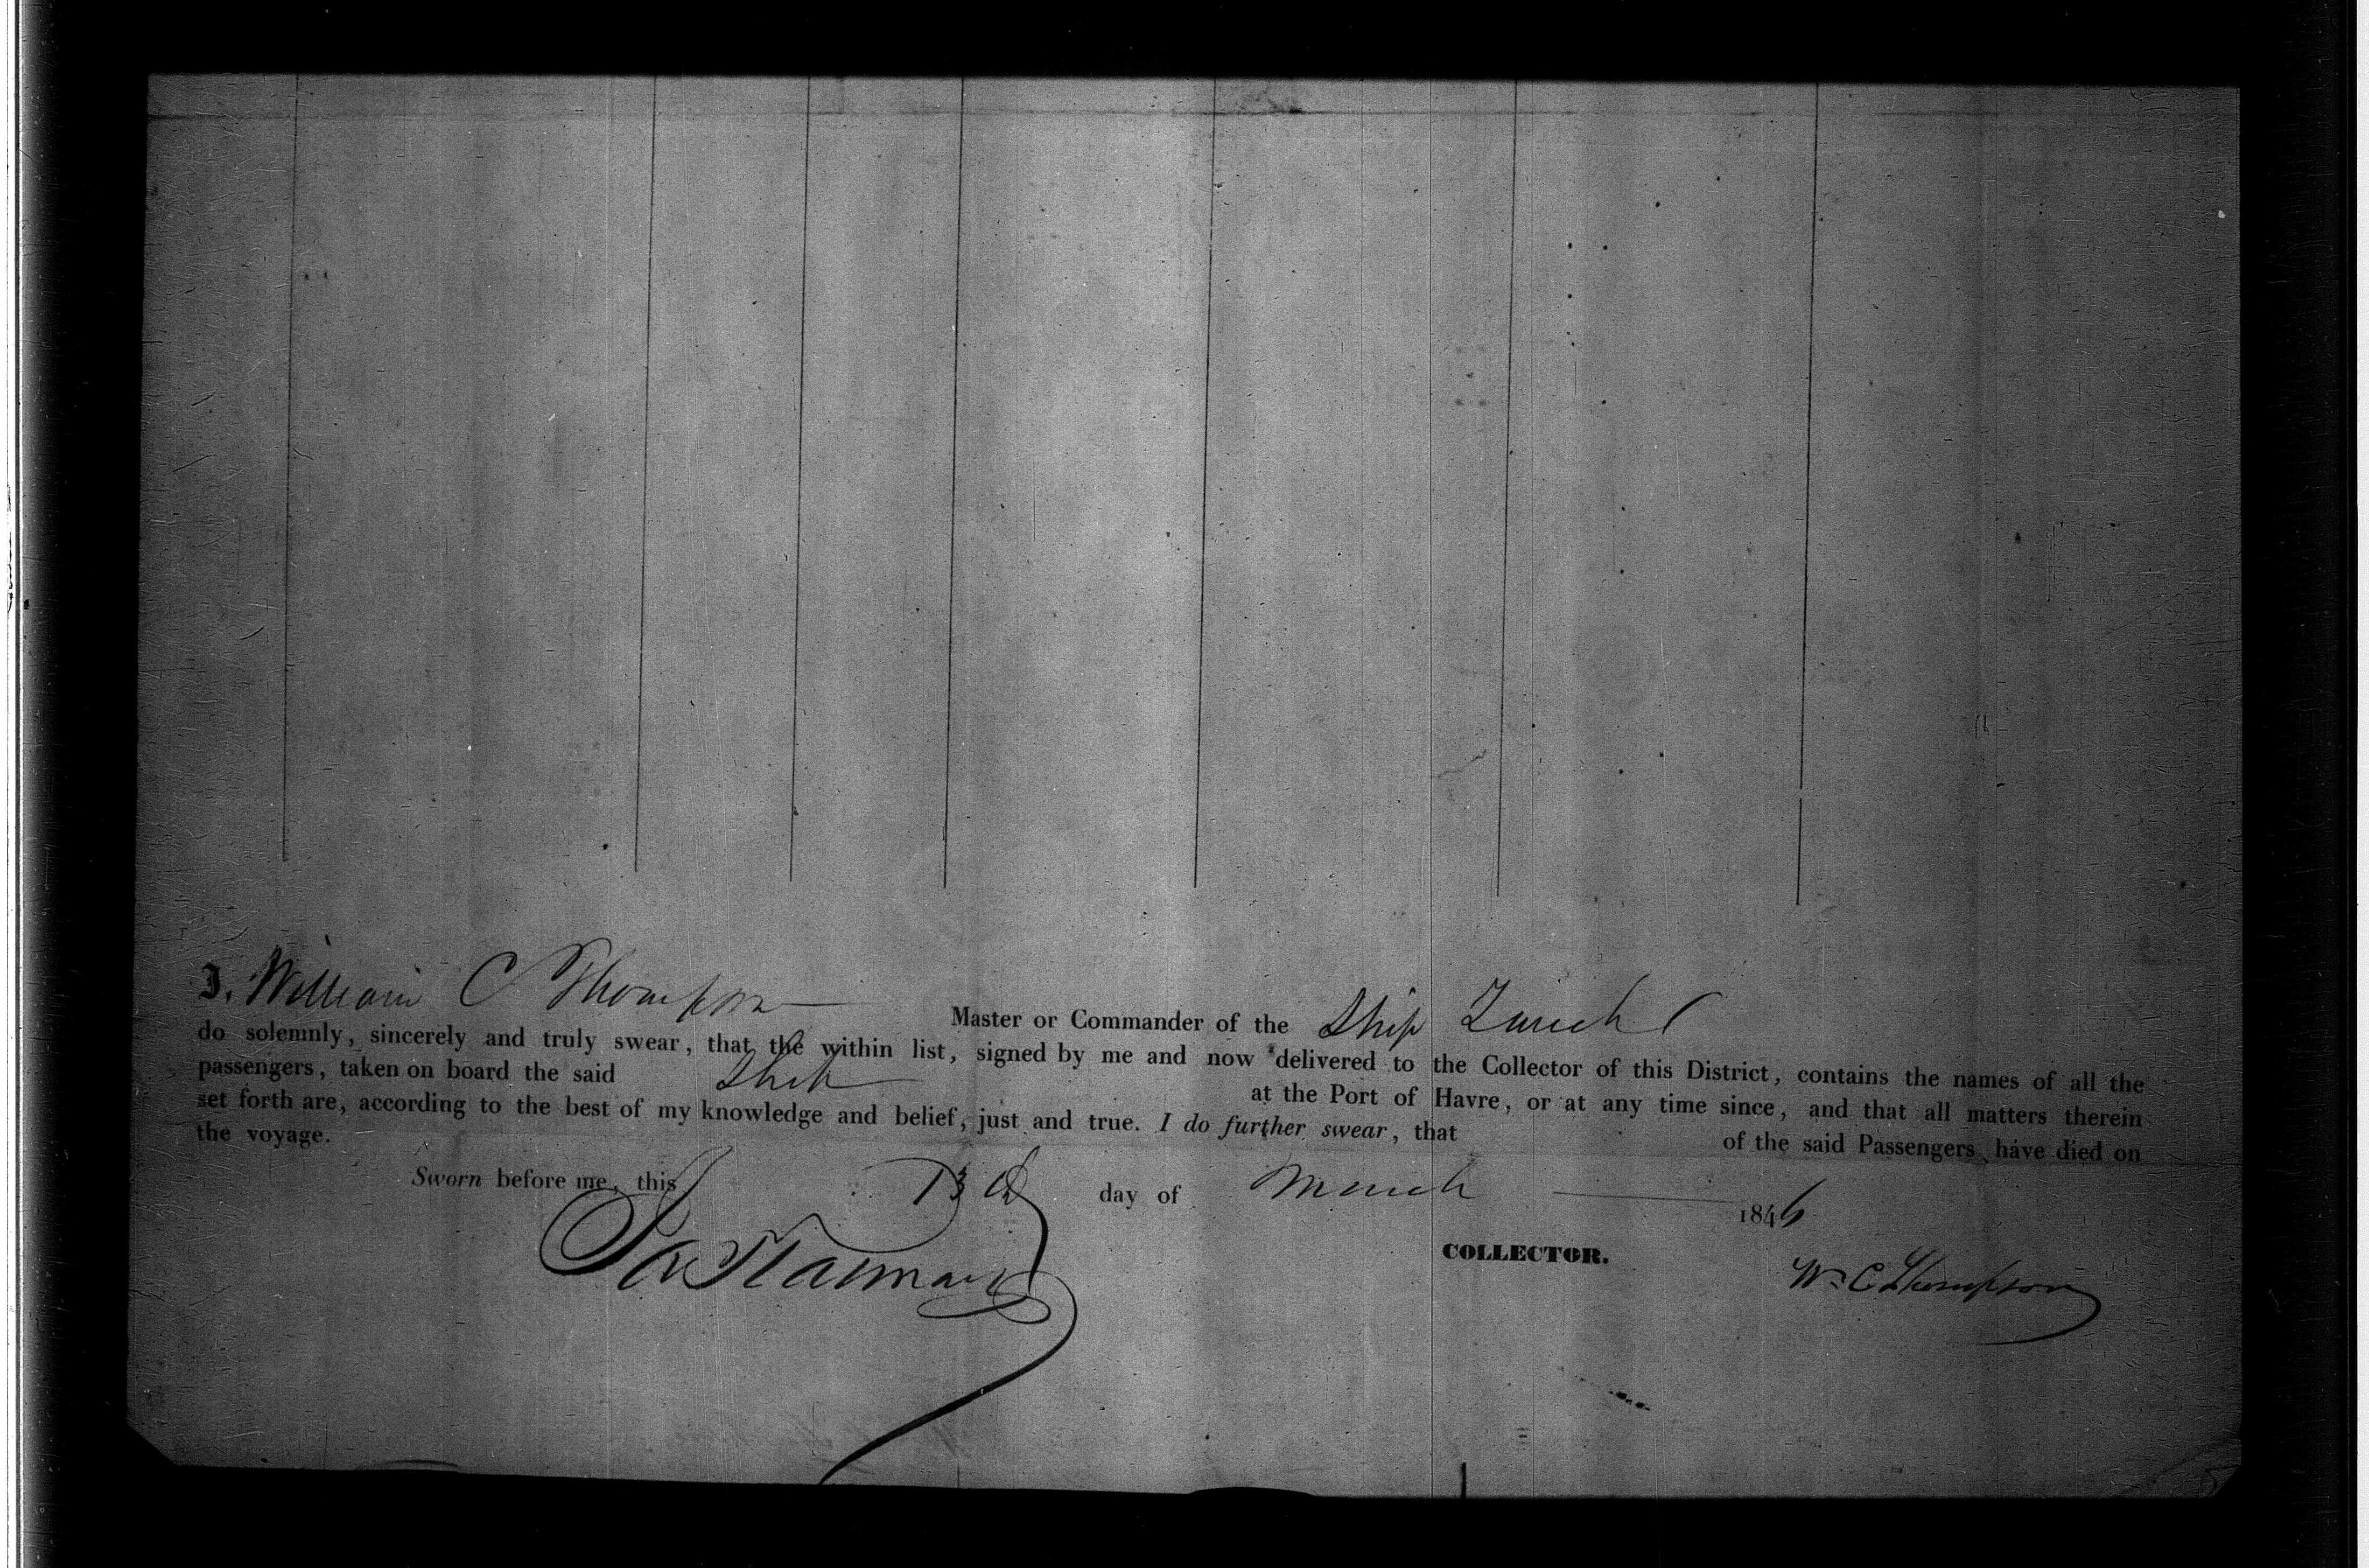 I, William C Thompson Master or Commander of the Ship Zurich
do solemnly, sincerely and truly swear, that the within list, signed by me and now delivered to the Collector of this District, contains the names of all the
passengers, taken on board the said Ship at the Port of Havre, or at any time since, and that all matters therein
set forth are, according to the best of my knowledge and belief, just and true. I do further swear, that of the said Passengers have died on
the voyage.
Sworn before me, this 13th day of March 1846
COLLECTOR.
Wm C Thompson